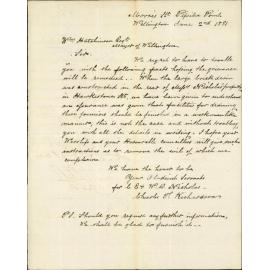 Moores St Pipitea Point
Wellington June 2nd 1881
Wm Hutchinson Esqre
Mayor of Wellington
Sir
We regret to have to trouble
you with the following facts hoping the grievance
will be remedied. When the large brick drain
was constructed in the rear of Messrs Nicholas' property
in Hawkestone St, we have been given to understand
an assurance was given that facilities for draining
their premises should be provided in a workmanlike
manner, this is not the case and without troubling
you with all the details in writing. I hope your
Worship and your Honorable councillors will give such
instructions as to remove the evil of which we
complain
We have the honor to be
Your Obedient Servants
for C E & W. D. Nicholas
Charles T. Richardson
P.S. Should you require any further information,
We shall be glad to furnish it